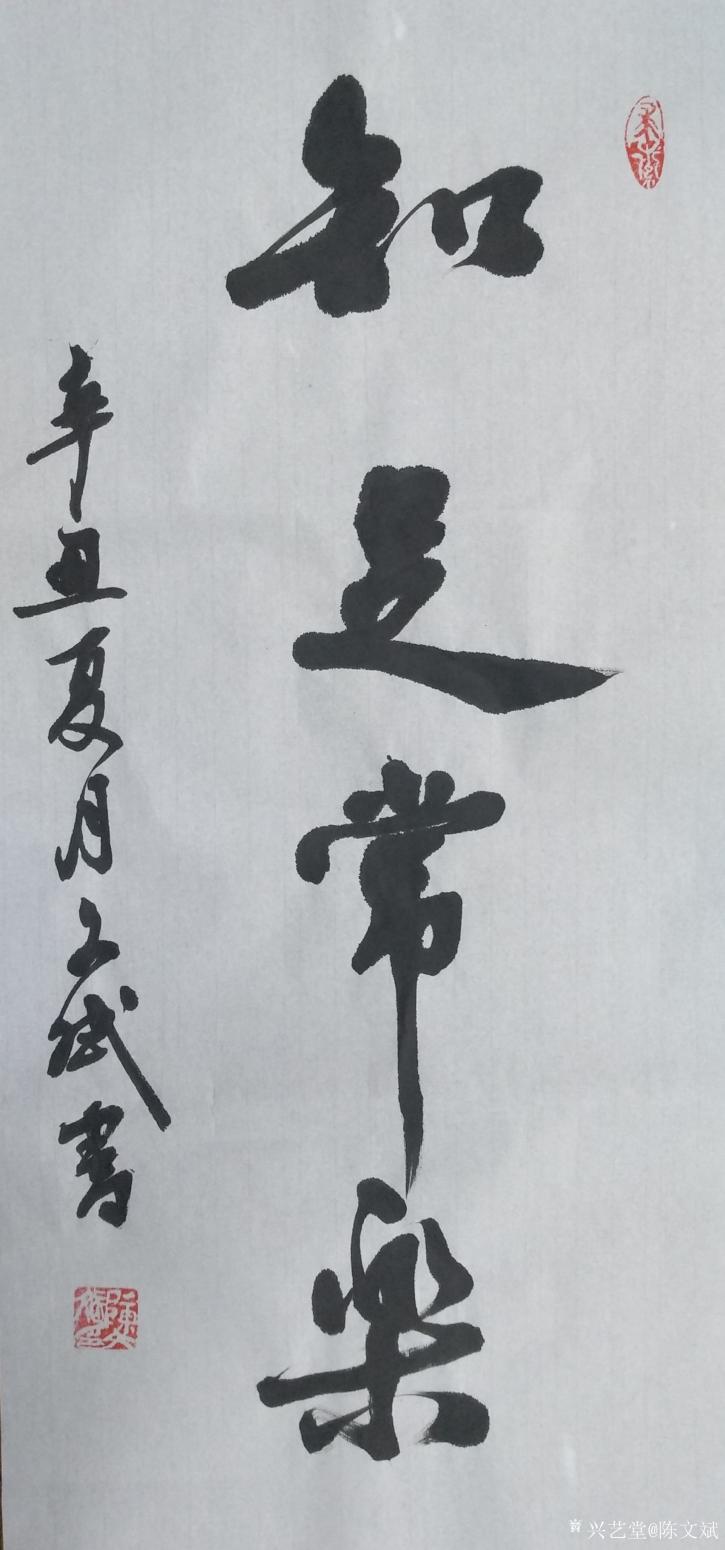 知足常樂
辛丑夏月文斌書
兴艺堂@陈文斌